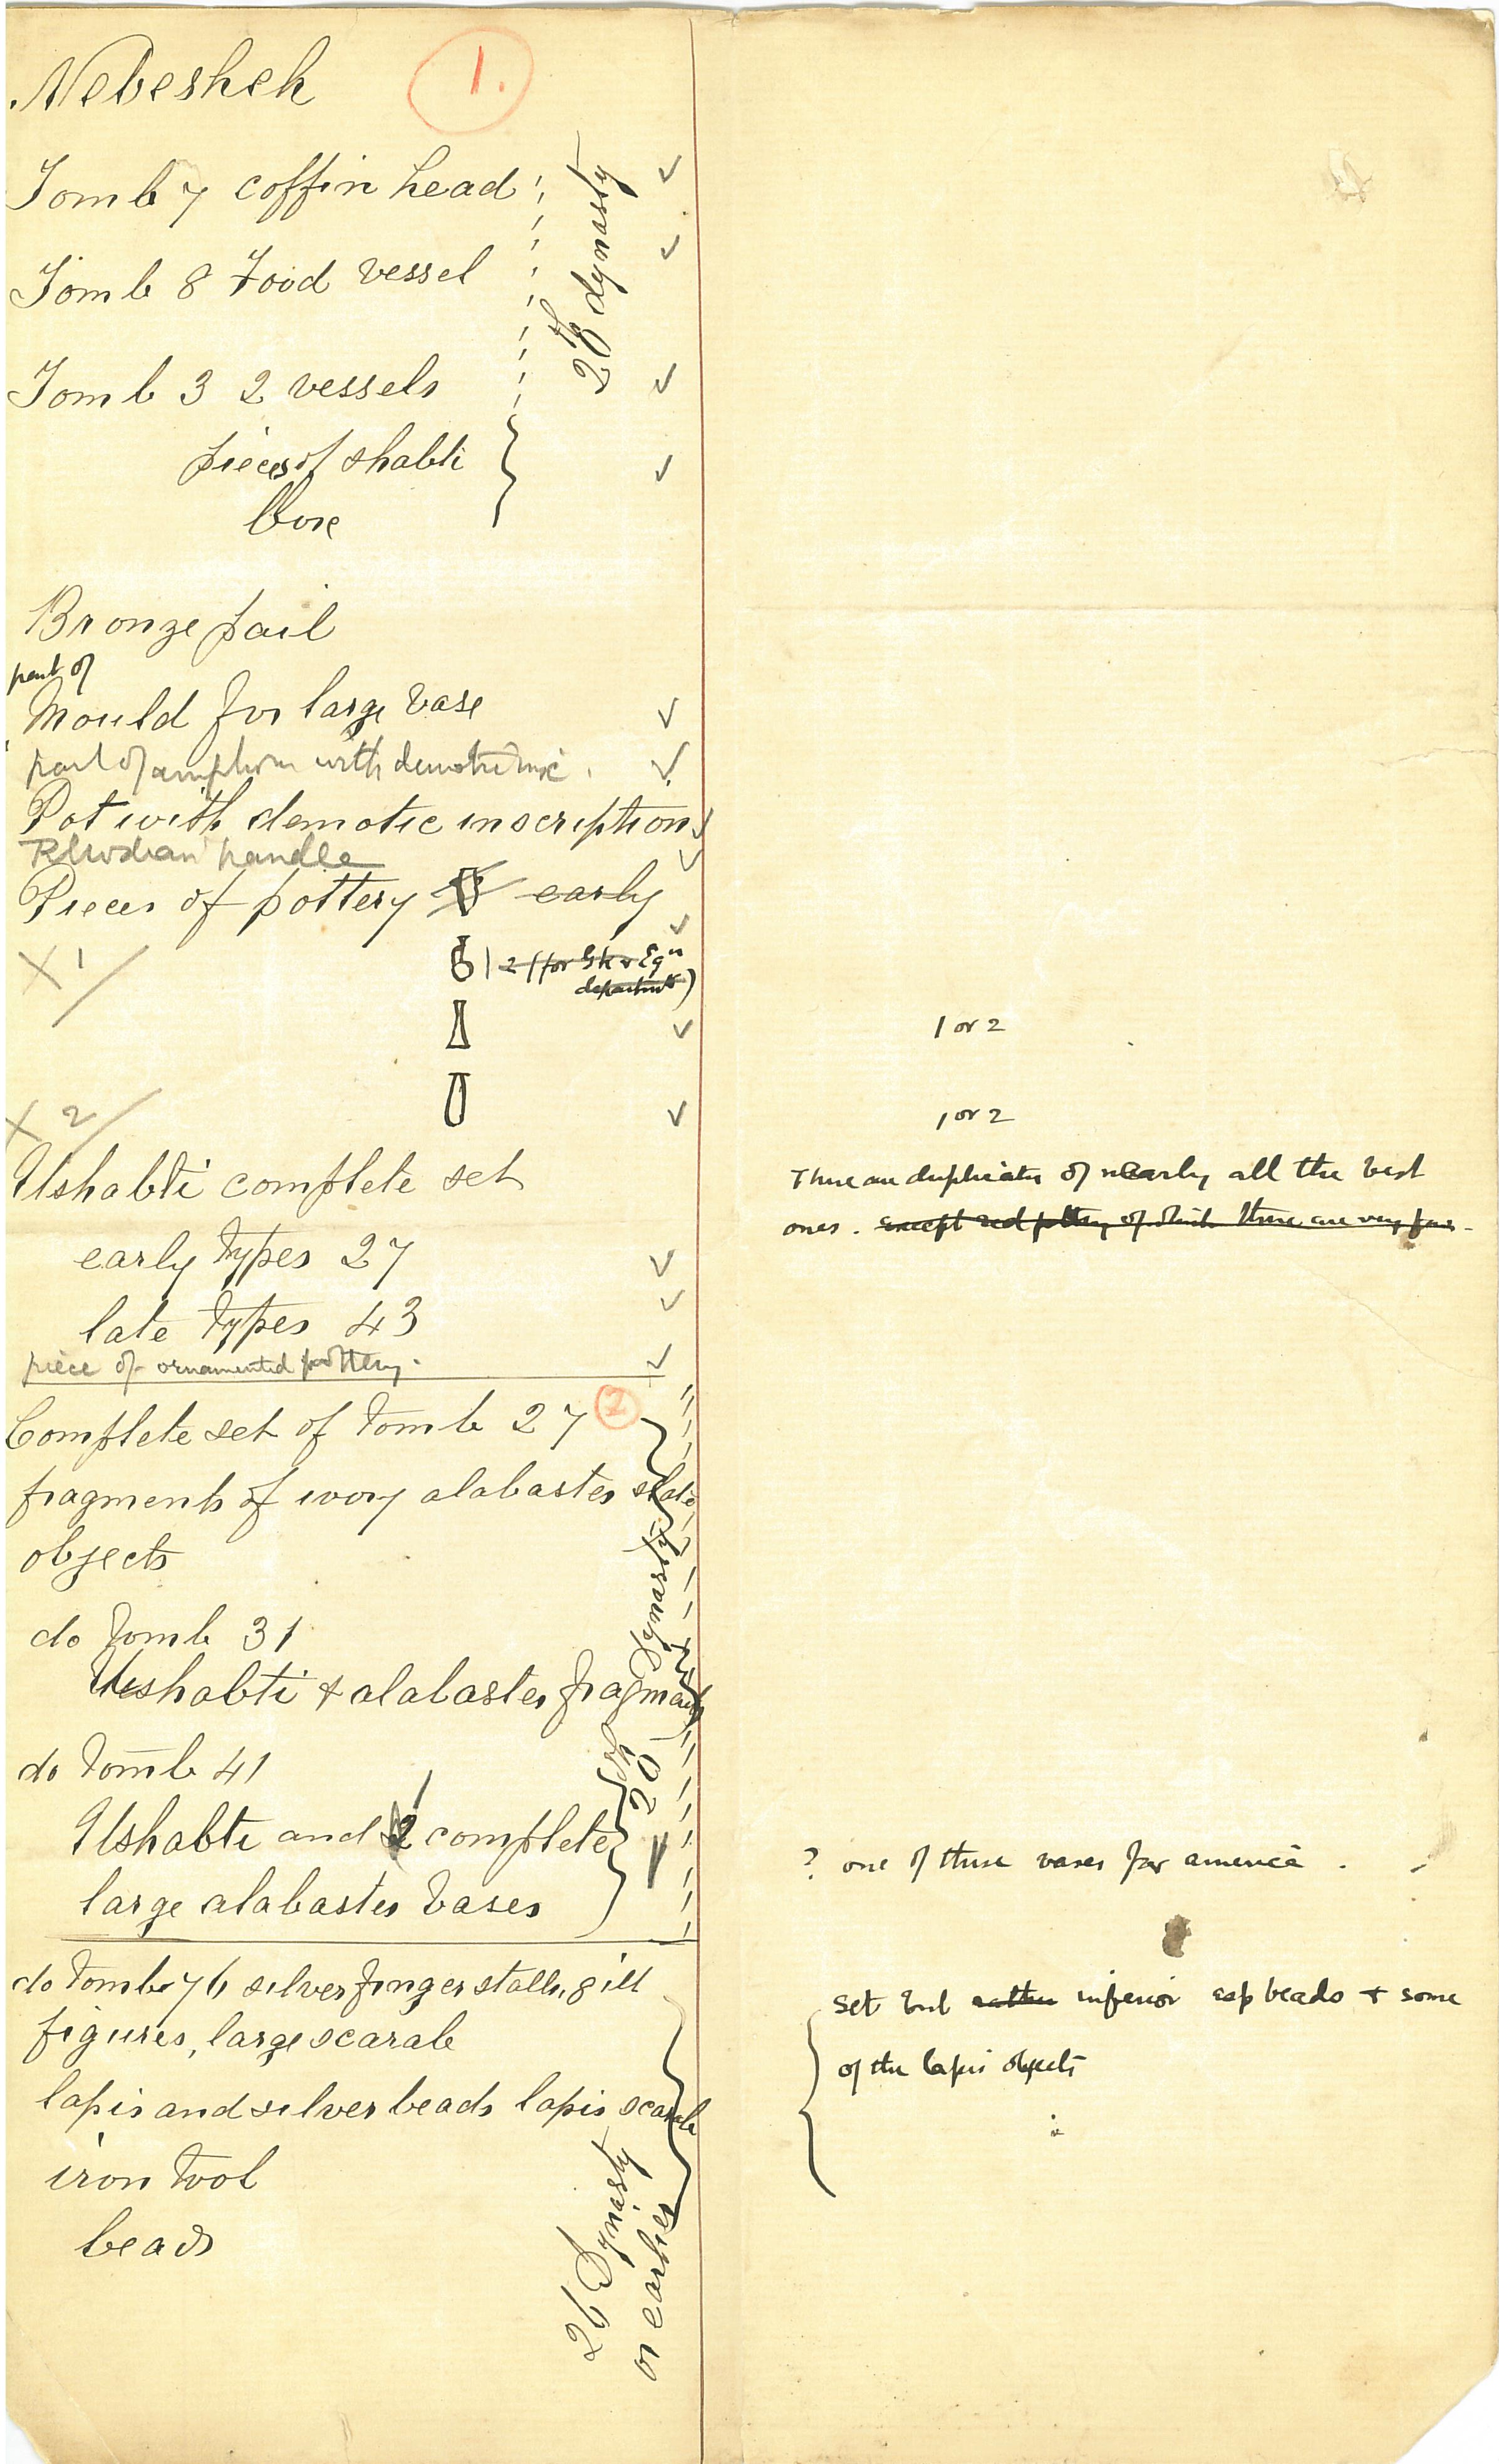 Nebesheh
1.
Tomb 7 coffin head
Tomb 8 Food vessel
20th dynasty
Tomb 3 2 vessels
pieces of shabti
box
Bronze pail
part of
Mould for large vase
part of amphora with demotic insc.
Pot with demotic inscriptions
Rhodian handle
Pieces of pottery early
X 1/
2 (for Gk & Egn
departments)
1 or 2
X 2/
1 or 2
Ushabti complete set
There are duplicates of nearly all the best
ones. except red pottery of which there are very few.
early types 27
late types 43
piece of ornamented pottery.
Complete set of tomb 27
2
fragments of ivory alabaster slate
objects
do tomb 31
Ushabti & alabaster fragments
20th Dynasty
do tomb 41
Ushabti and 2 complete
1
large alabaster vases
? one of these vases for america.
do tomb 76 silver finger stalls, gilt
figures, large scarab
lapis and silver beads lapis scarab
iron tool
beads
26 Dynasty
or earlier
set but rather inferior esp beads & some
of the lapis objects